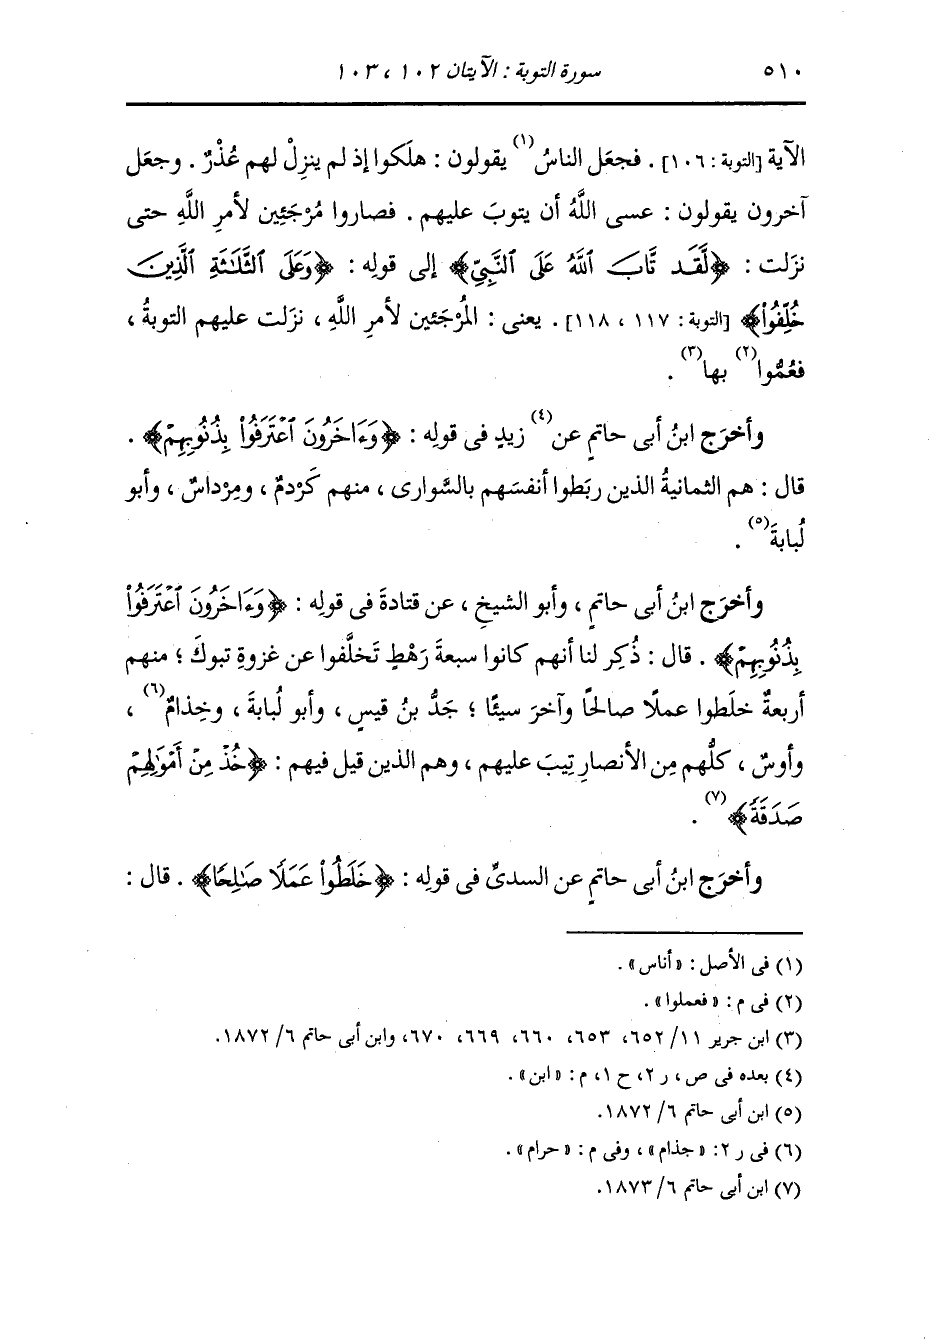 ٥١٠ سورة التوبة : الآيتان ١٠٢ ، ١٠٣
الآية [التوبة : ١٠٦] . فجعَل الناسُ(١) يقولون : هلَكوا إذ لم ينزِلْ لهم عُذْرٌ . وجعَل
آخرون يقولون : عسى اللَّهُ أن يتوبَ عليهم . فصاروا مُرْجَئِين لأمرِ اللَّهِ حتى
نزَلت : ﴿لَّقَد تَّابَ ٱللَّهُ عَلَى ٱلنَّبِيِّ﴾ إلى قولِه : ﴿وَعَلَى ٱلثَّلَـٰثَةِ ٱلَّذِينَ
خُلِّفُواْ﴾ [التوبة : ١١٧ ، ١١٨] . يعنى : المُرْجَئين لأمرِ اللَّهِ ، نزَلت عليهم التوبةُ ،
فعُمُّوا(٢) بها(٣) .
وأخرَج ابنُ أبى حاتمٍ عن(٤) زيدٍ فى قولِه : ﴿وَءَاخَرُونَ ٱعْتَرَفُواْ بِذُنُوبِهِمْ﴾ .
قال : هم الثمانيةُ الذين ربَطوا أنفسَهم بالسَّوارى ، منهم كَرْدمٌ ، ومِرْداسٌ ، وأبو
لُبابةَ(٥) .
وأخرَج ابنُ أبى حاتمٍ ، وأبو الشيخِ ، عن قتادةَ فى قولِه : ﴿وَءَاخَرُونَ ٱعْتَرَفُواْ
بِذُنُوبِهِمْ﴾ . قال : ذُكِر لنا أنهم كانوا سبعةَ رَهْطٍ تَخلَّفوا عن غزوةِ تبوكَ ؛ منهم
أربعةٌ خلَطوا عملًا صالحًا وآخرَ سيئًا ؛ جَدُّ بنُ قيسٍ ، وأبو لُبابةَ ، وخِذامٌ(٦) ،
وأوسٌ ، كلُّهم مِن الأنصارِ تِيبَ عليهم ، وهم الذين قيل فيهم : ﴿خُذْ مِنْ أَمْوَٰلِهِمْ
صَدَقَةً﴾(٧) .
وأخرَج ابنُ أبى حاتمٍ عن السدىِّ فى قولِه : ﴿خَلَطُواْ عَمَلًا صَـٰلِحًا﴾ . قال :
(١) فى الأصل : «أناس» .
(٢) فى م : «فعملوا» .
(٣) ابن جرير ١١/ ٦٥٢، ٦٥٣، ٦٦٠، ٦٦٩، ٦٧٠، وابن أبى حاتم ٦/ ١٨٧٢.
(٤) بعده فى ص ، ر ٢، ح ١، م : «ابن» .
(٥) ابن أبى حاتم ٦/ ١٨٧٢.
(٦) فى ر ٢: «جذام» ، وفى م : «حرام» .
(٧) ابن أبى حاتم ٦/ ١٨٧٣.